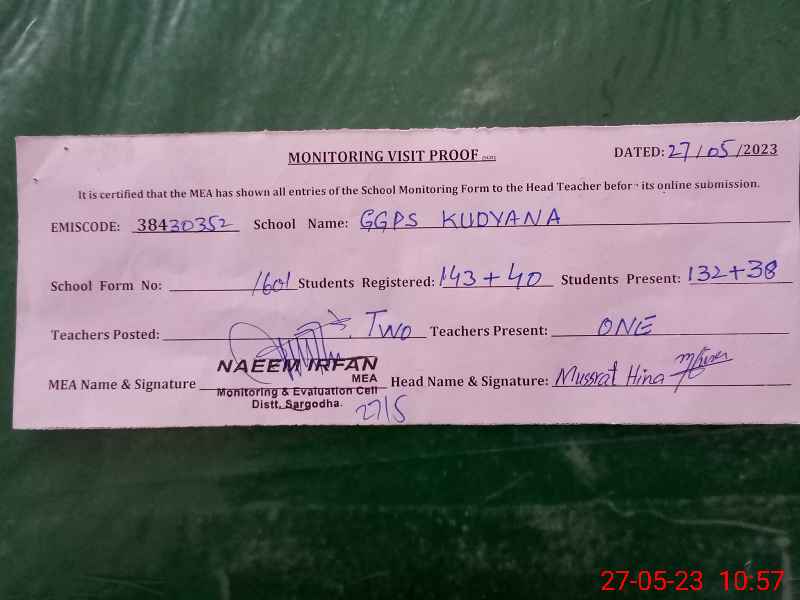 MONITORING VISIT PROOF DATED: 27/05/2023
It is certified that the MEA has shown all entries of the School Monitoring Form to the Head Teacher before its online submission.
EMISCODE: 38430352 School Name: GGPS KUDYANA
School Form No: 1601 Students Registered: 143+40 Students Present: 132+38
Teachers Posted: TWO Teachers Present: ONE
NAEEM IRFAN
MEA
MEA Name & Signature Head Name & Signature: Mussrat Hina
Monitoring & Evaluation Cell
Distt, Sargodha.
27/5
27-05-23 10:57